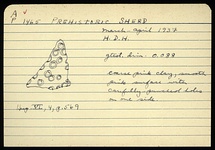 A
P 1465 PREHISTORIC SHERD
March-April 1937
H.D.H.
glad. dim. 0.088
coarse pink clay, smooth
pink surface with
carefully punched holes
on one side
Aug VI, 4, p. 569